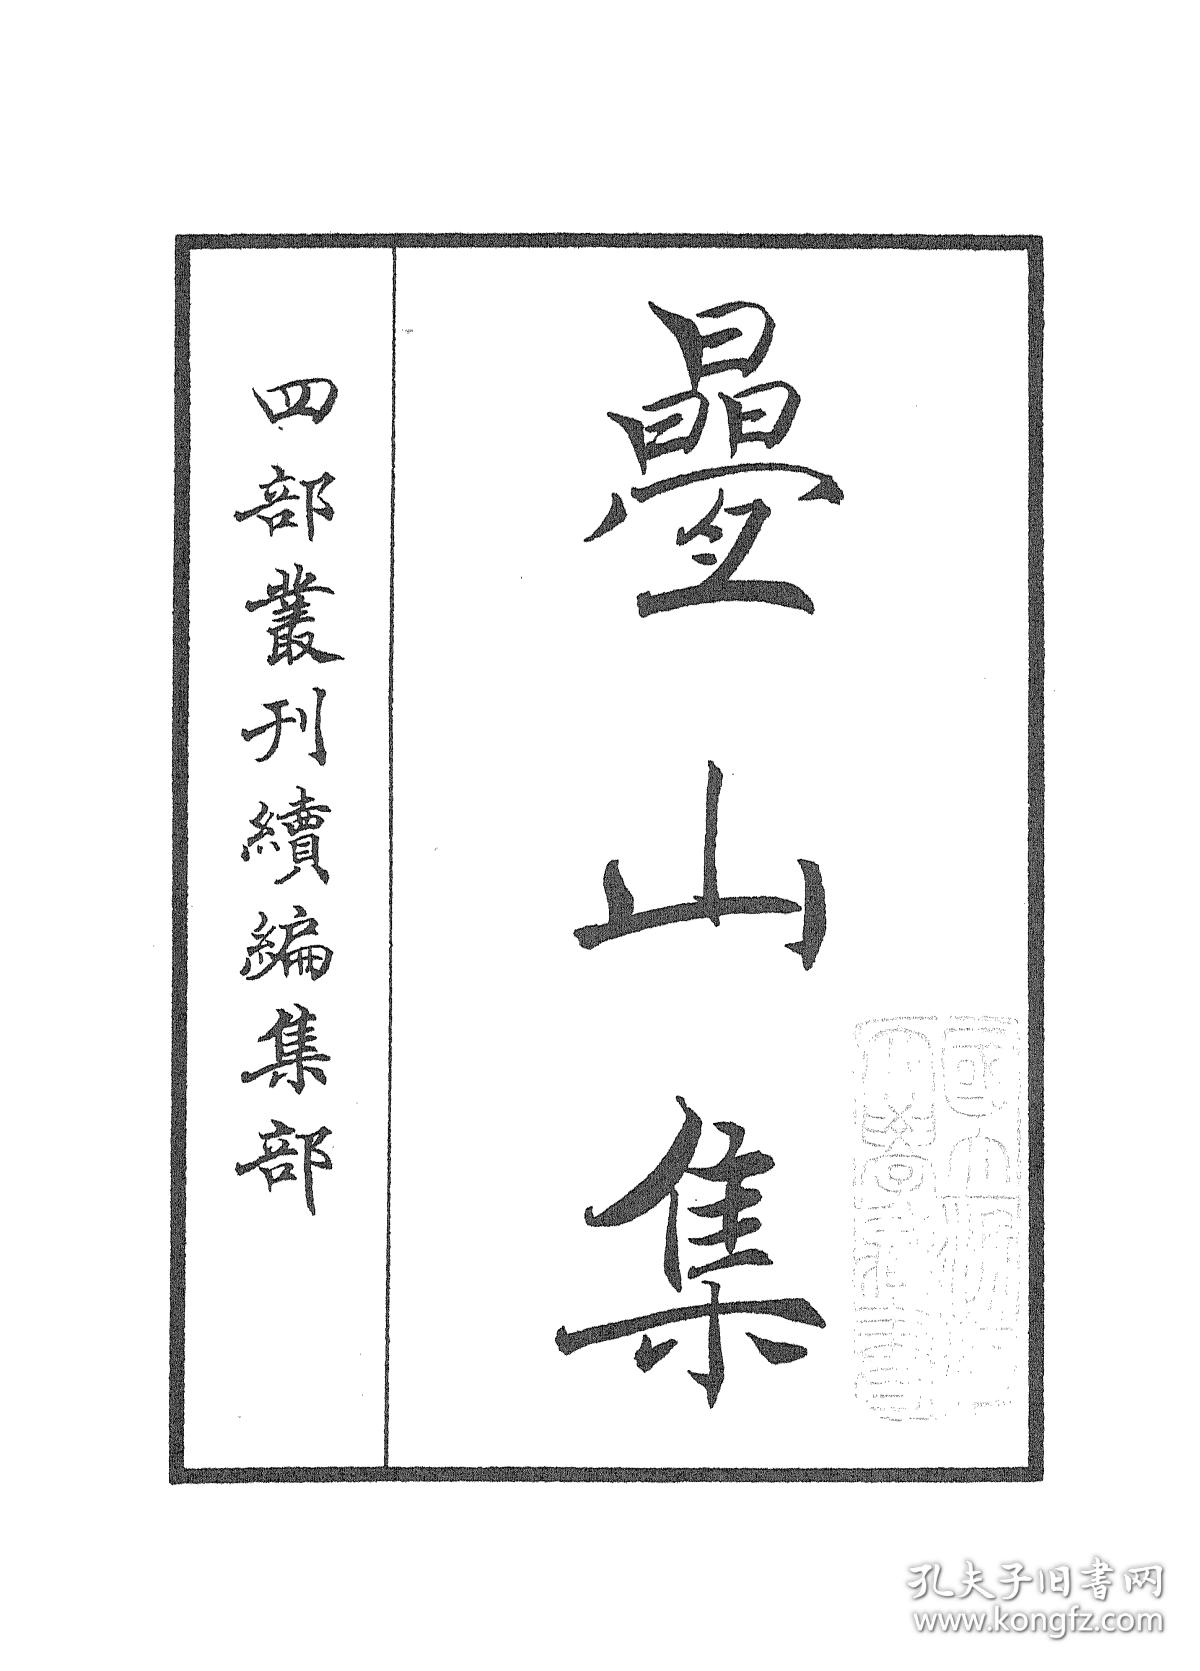 疊山集
四部叢刊續編集部
孔夫子旧书网
www.kongfz.com